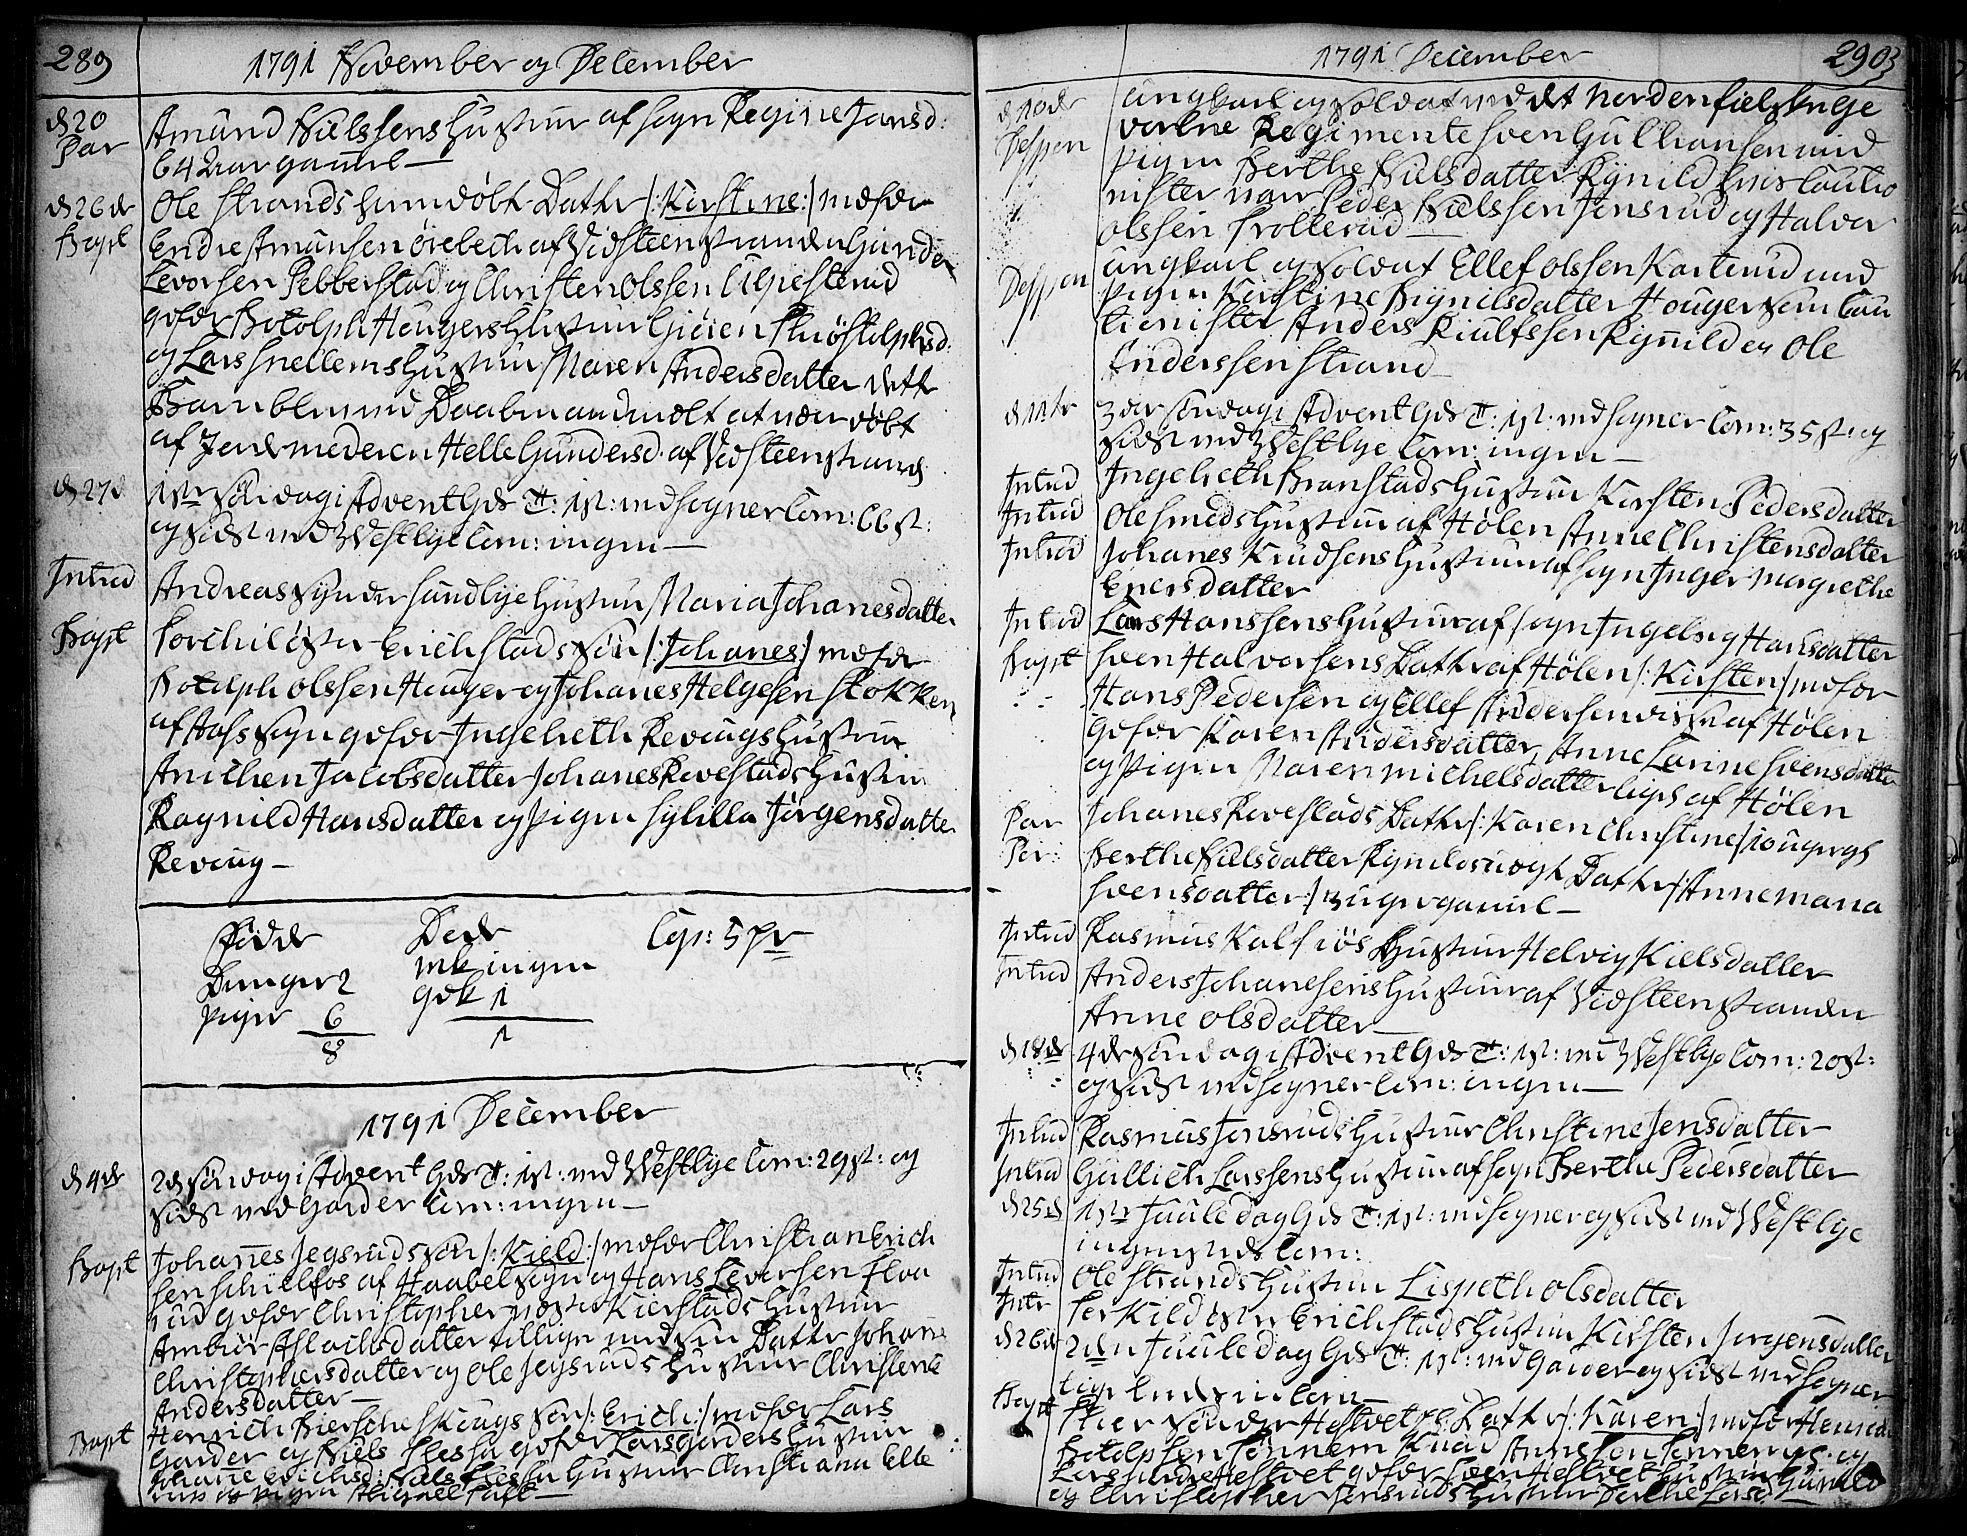 289
1791 November og December
d 20 Amund Nielssens Hustrue af Sogn Regine Jansd:
Par 64 Aar gammel
d 26de Ole Strands hiemdøbt Datter /: Kirstine :/ mdfdr
Bapt Endre Amunsen Ørebech af Vidsteenstranden Gunder
Levorsen Pebberstad og Christen Olssen
qvfdr Botolph Hougers Hustrue
og Lars Snellems Hustrue Maren Andersdatter dette
Barn blev ved Daaben anmeldt at være døbt
af Jordemoderen Helle Gundersd. af Vidsteenstrand
d 27d 1ste Søndag i Advent Gds T: 1st: ved Sogner Com: 66 st:
og sidst ved Westbye Com: ingen
Introd Andreas Synder Sundbye Hustrue Maria Johanesdatter
Bapt Torchil Øster Erichstads Søn /: Johanes :/ mdfdr
Botolph Olssen Houger og Johanes Helgesen Stokken
af Aas Sogn qvfdr Ingebreth Revougs Hustrue
Anichen Jacobsdatter Johanes Revestads Hustrue
Ragnild Hansdatter og Pigen Sybilla Jørgensdatter
Revoug
Fødde Døde Cop: 5 Pr
Drenger 2 mk ingen
Piger 6 qvk 1
8 1
1791 December
d 4de 2d Søndag i Advent Gds T: 1st: ved Westbye Com: 29 st: og
sidst ved Garder Com: ingen
Bapt Johannes Jegsruds Søn /: Kield :/ mdfdr Christian Erich
sen Schielfos af Haabel Sogn og Hans Levorsen Floa
rud qvfdr Christopher Kierstads Hustrue
Ambiør Aslachsdatter tillige med sin Datter Johane
Christophersdatter og Ole Jegsruds Hustrue Christense
Andersdatter
Bapt Henrich Bierche Skougs Søn /: Erich :/ mdfdr Lars
Garder og Niels Flessa qvfdr Lars Garders Hustrue
Johane Erichsd: Niels Flessa Hustrue Christiana Elle
og Pigen
1791 December
290
d 10de Ungkarl og Soldat ved det Nordenfielske
Despon vorbne Regimente Sven Gulchansen med
Pigen Berthe Nielsdatter Rynild hvis Cautio
nister var Peder Nielssen Jonsrud og Halvor
Olssen Trollerud
Despon Ungkarl og Soldat Ellef Olssen Karterud med
Pigen Kirstine Rignilsdatter Houger som Cau
tionister Anders Kiulfssen Rynild og Ole
Anderssen Strand
d 11te 3die Søndag i Advent Gds T: 1st: ved Sogner Com: 35 st: og
sidst ved Westbye Com: ingen
Introd Ingebreth Branstads Hustrue Kirsten Pedersdatter
Introd Ole Smeds Hustrue af Hølen Anne Christensdatter
Introd Johanes Knudsens Hustrue af Sogn Inger Magrethe
Enersdatter
Introd Lars Hanssens Hustrue af Sogn Ingeborg Hansdatter
Bapt Sven Halvorsens Datter af Hølen /: Kirsten :/ mdfdr
Hans Pedersen og Ellef Andersen af Hølen
qvfdr Karen Andersdatter, Anne Lovine Svensdatter
og Pigen Maren Michelsdatter af Hølen
Par Johanes Revestads Datter /: Karen Christine :/ 10 uger gl
Par: Berthe Nielsdatter Rynild Datter /: Anne Maria
Svensdatter :/ 3 uger gammel
Introd Rasmus Kalfiøs Hustrue Helvig Kielsdatter
Introd Anders Johanesens Hustrue af Vidsteenstranden
Anne Olsdatter
d 18de 4de Søndag i Advent Gds T: 1st: ved Westbye Com: 20 st:
og sidst ved Sogner Com: ingen
Introd Rasmus Jonsruds Hustrue Christine Jensdatter
Introd Gullich Larssens Hustrue af Sogn Berthe Pedersdatter
d 25d 1ste Juule Dag Gds T: 1st: ved Sogner og sidst ved Westbye
ingensteds Com:
Introd Ole Strands Hustrue Lisbeth Olsdatter
Intr Torkild Østre Erichstads Hustrue Kirsten Jørgensdatter
d 26d 2den Juule Dag Gds T: 1st: ved Garder og sidst ved Sogner
Com:
Bapt Søndre Hestvet Datter /: Karen :/ mdfdr Henrich
Botolphsen Tønnem Knud Anussen Tønnem og
Lars Søndre Hestvet qvfdr Sven Hestvet Hustrue Gunild
og Christopher Jonsruds Hustrue Berthe Larsd: